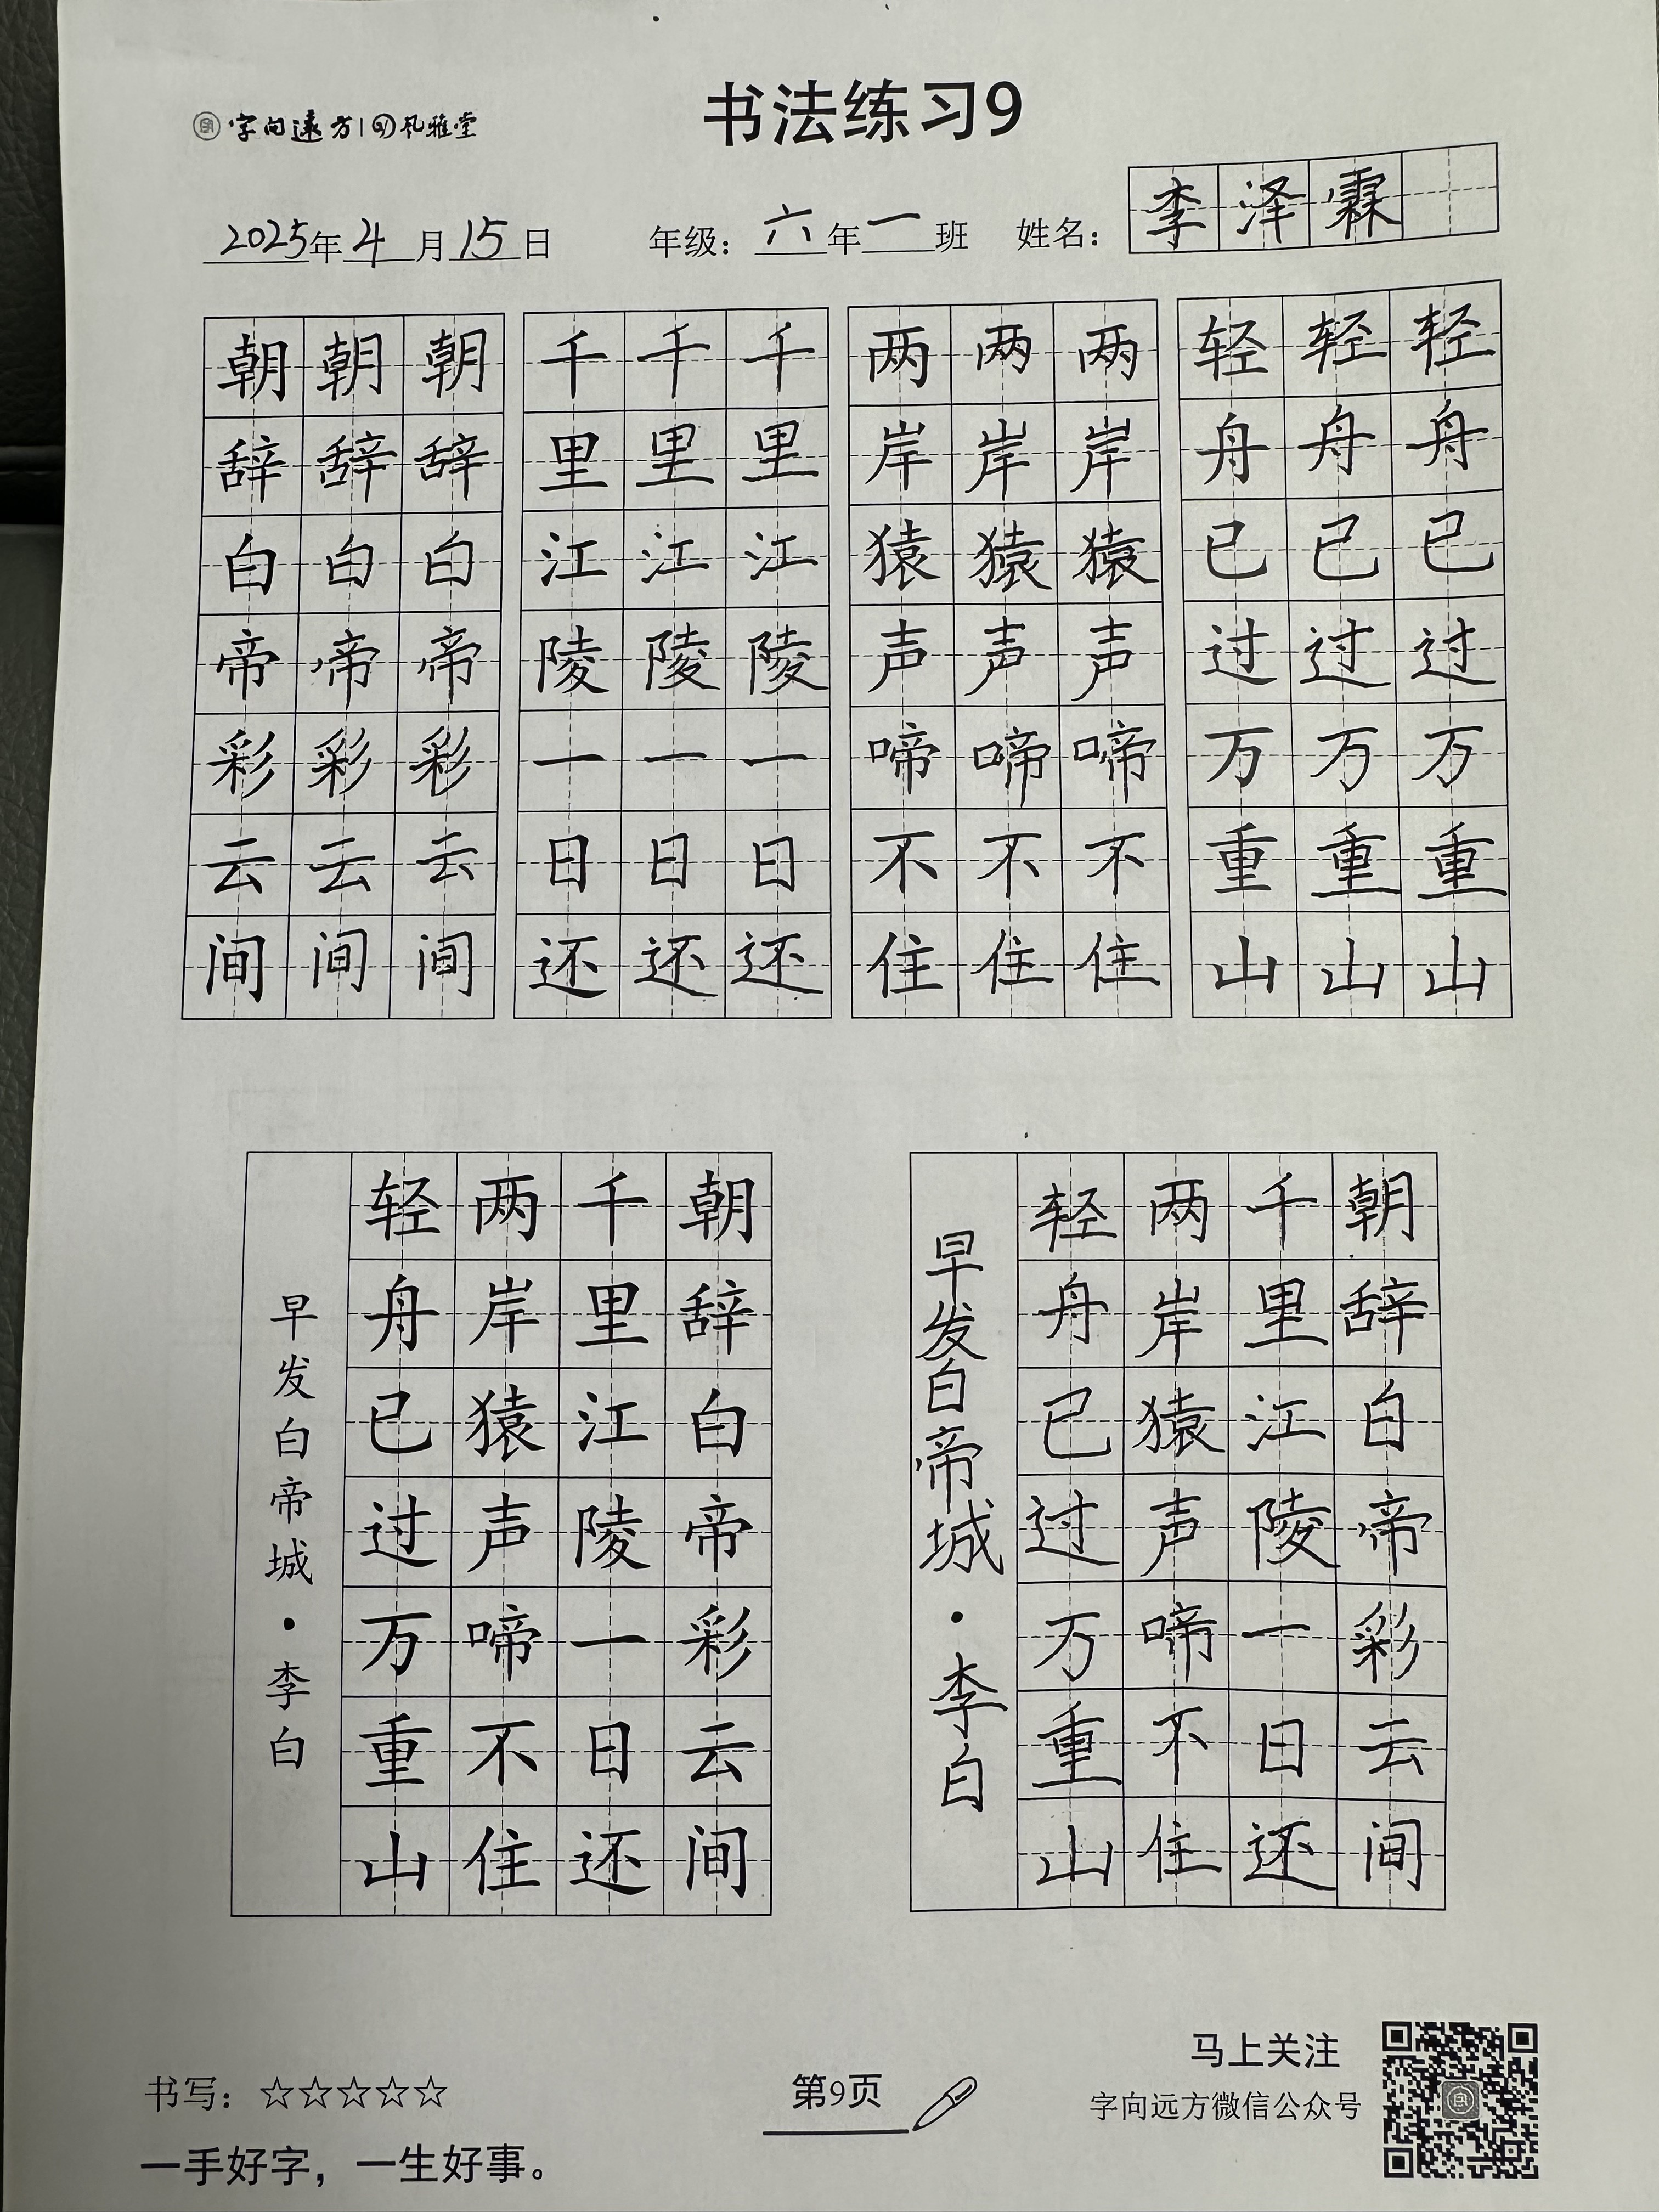 书法练习9
字向遠方 风雅堂
2025年4月15日 年级：六年一班 姓名：李泽霖
朝朝朝 千千千 两两两 轻轻轻
辞辞辞 里里里 岸岸岸 舟舟舟
白白白 江江江 猿猿猿 已已已
帝帝帝 陵陵陵 声声声 过过过
彩彩彩 一一一 啼啼啼 万万万
云云云 日日日 不不不 重重重
间间间 还还还 住住住 山山山
朝辞白帝彩云间
千里江陵一日还
两岸猿声啼不住
轻舟已过万重山
早发白帝城·李白
朝辞白帝彩云间
千里江陵一日还
两岸猿声啼不住
轻舟已过万重山
早发白帝城·李白
书写：☆☆☆☆☆
一手好字，一生好事。
第9页
马上关注
字向远方微信公众号